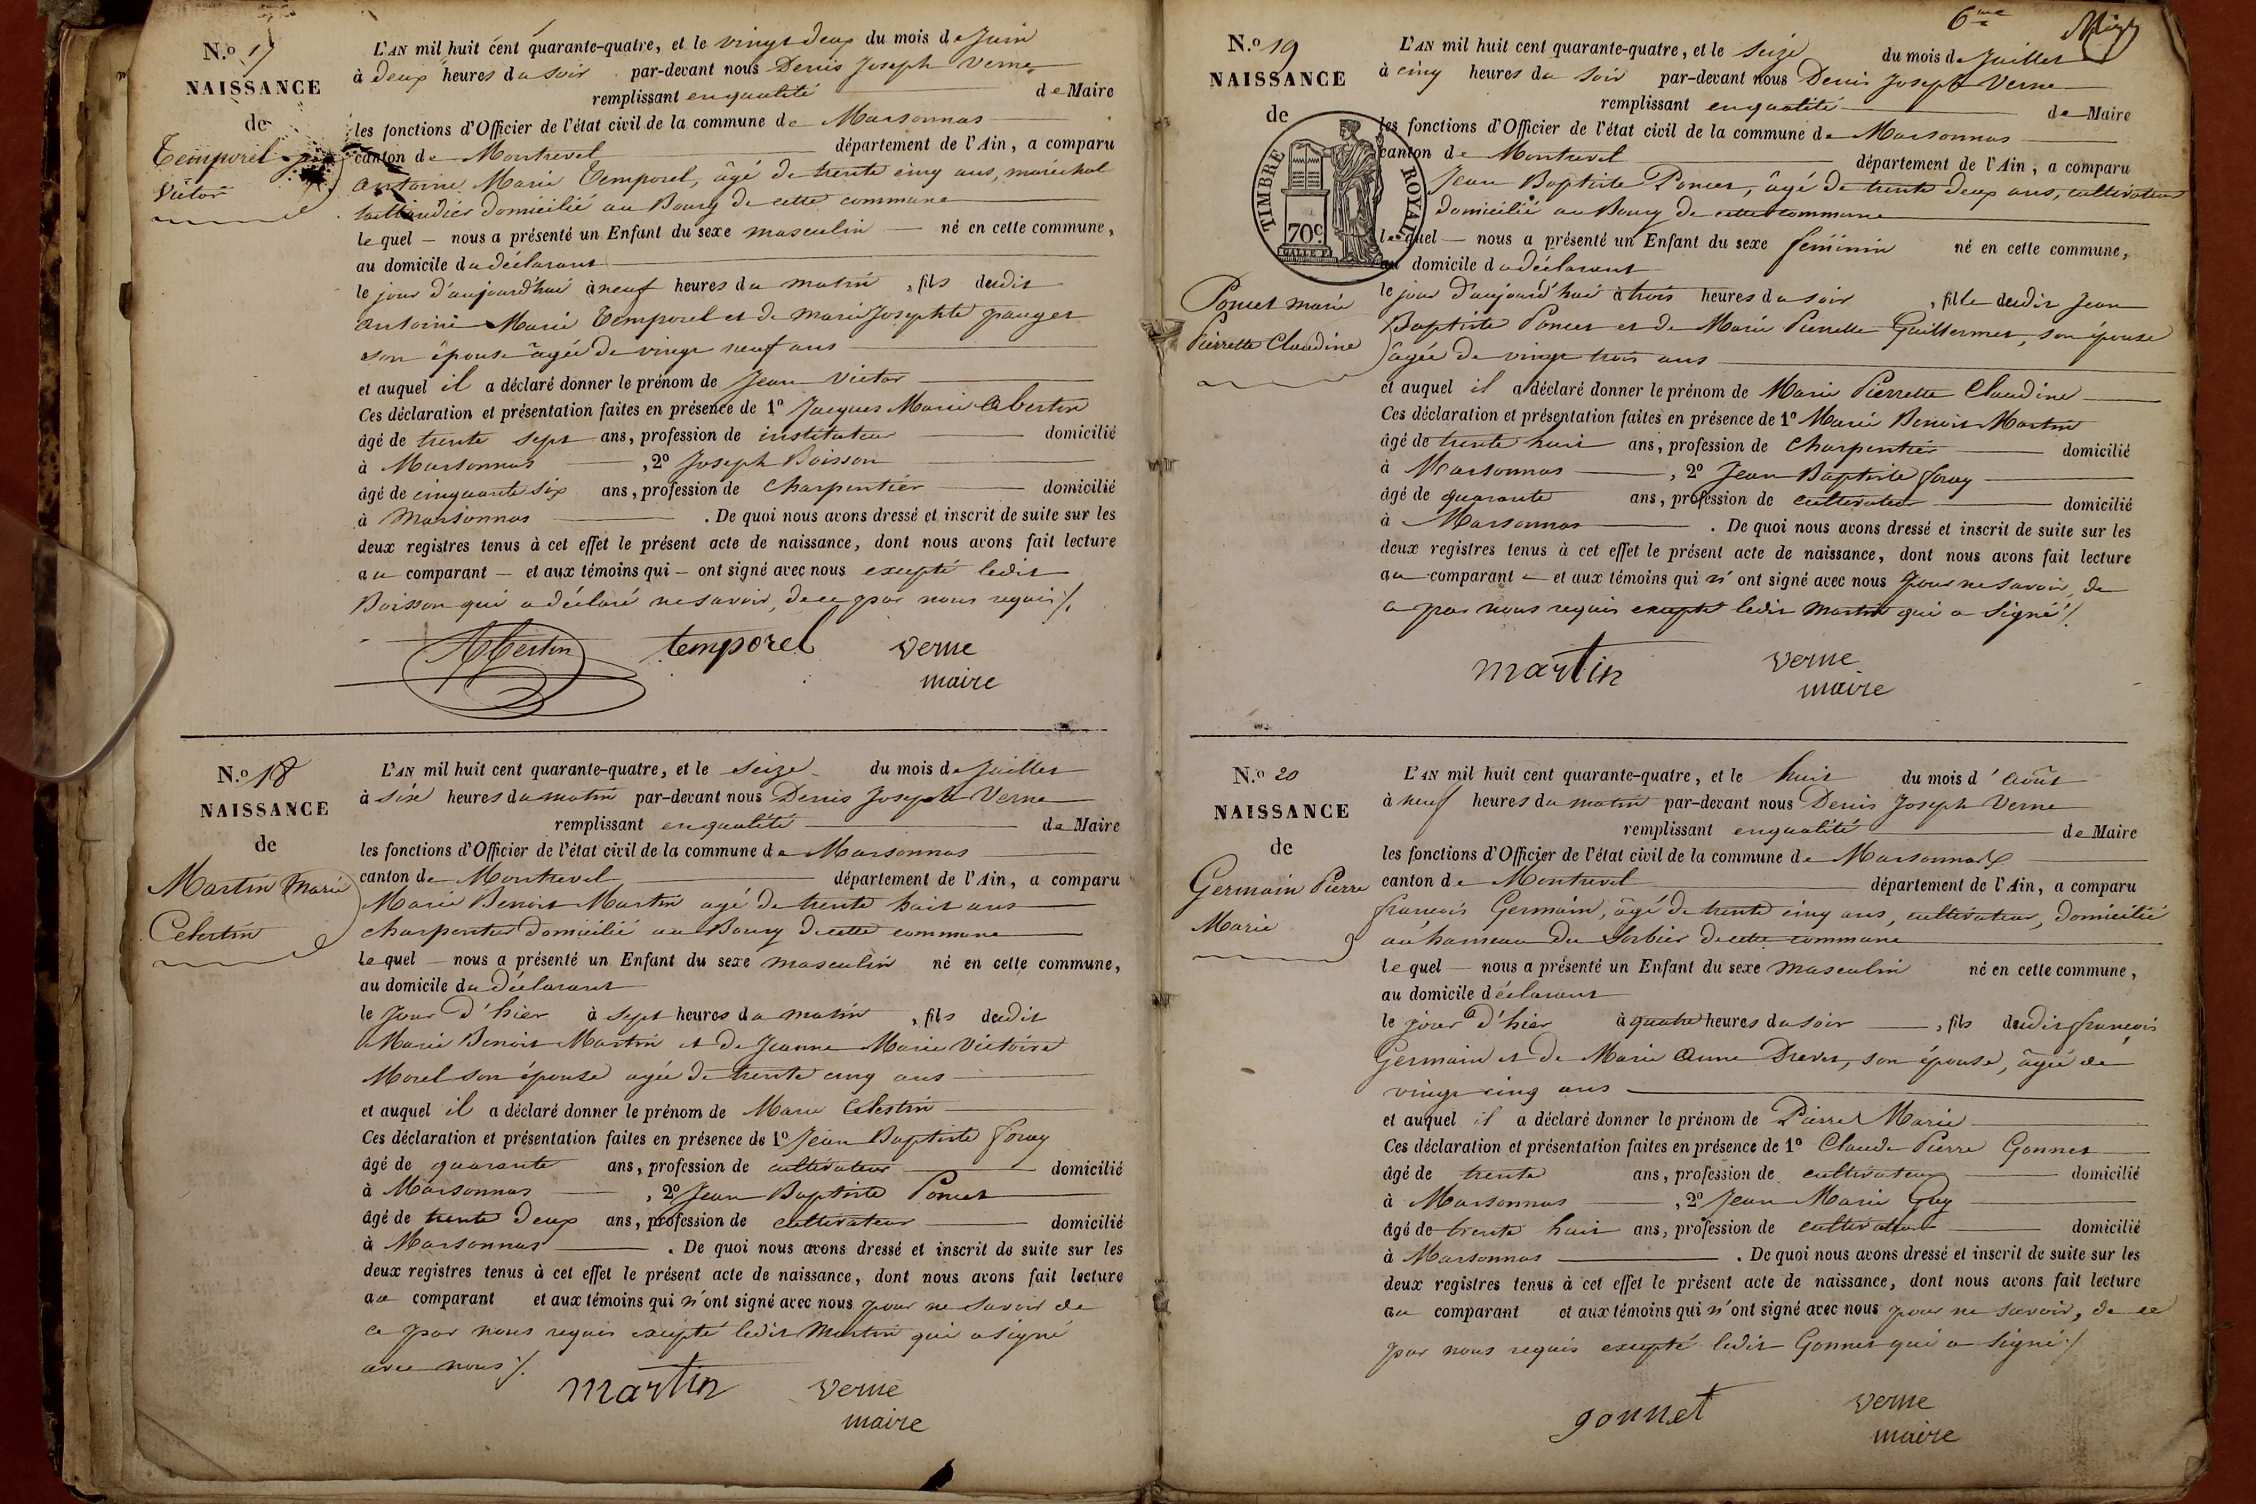 N.º 17
NAISSANCE
de
Temporel
Victor
L'AN mil huit cent quarante-quatre, et le vingt deux du mois de Juin
à deux heures du soir par-devant nous Denis Joseph Verne
remplissant en qualité de Maire
les fonctions d'Officier de l'état civil de la commune de Marsonnas
canton de Montrevel département de l'Ain, a comparu
Antoine Marie Temporel, âgé de trente cinq ans, maréchal
taillandier domicilié au Bourg de cette commune
lequel nous a présenté un Enfant du sexe masculin né en cette commune,
au domicile du déclarant
le jour d'aujourd'hui à neuf heures du matin, fils dudit
Antoine Marie Temporel et de Marie Josephte pauget
son épouse âgée de vingt neuf ans
et auquel il a déclaré donner le prénom de Jean Victor
Ces déclaration et présentation faites en présence de 1º Jacques Marie Abertin
âgé de trente sept ans, profession de instituteur domicilié
à Marsonnas, 2º Joseph Boisson
âgé de cinquante six ans, profession de charpentier domicilié
à Marsonnas. De quoi nous avons dressé et inscrit de suite sur les
deux registres tenus à cet effet le présent acte de naissance, dont nous avons fait lecture
au comparant et aux témoins qui ont signé avec nous excepté ledit
Boisson qui a déclaré ne savoir, de ce par nous requis ./.
Abertin temporel verne
maire
N.º 18
NAISSANCE
de
Martin Marie
Celestin
L'AN mil huit cent quarante-quatre, et le seize du mois de Juillet
à sixe heures du matin par-devant nous Denis Joseph Verne
remplissant en qualité de Maire
les fonctions d'Officier de l'état civil de la commune de Marsonnas
canton de Montrevel département de l'Ain, a comparu
Marie Benoit Martin agé de trente huit ans
charpentier domicilié au Bourg de cette commune
lequel nous a présenté un Enfant du sexe masculin né en cette commune,
au domicile du déclarant
le jour d'hier à sept heures du matin, fils dudit
Marie Benoit Martin et de Jeanne Marie Victoire
Morel son épouse agée de trente cinq ans
et auquel il a déclaré donner le prénom de Marie Celestin
Ces déclaration et présentation faites en présence de 1º Jean Baptiste foray
âgé de quarante ans, profession de cultivateur domicilié
à Marsonnas, 2º Jean Baptiste Poncet
âgé de trente deux ans, profession de cultivateur domicilié
à Marsonnas. De quoi nous avons dressé et inscrit de suite sur les
deux registres tenus à cet effet le présent acte de naissance, dont nous avons fait lecture
au comparant et aux témoins qui n'ont signé avec nous pour ne savoir de
ce par nous requis excepté ledit Martin qui a signé
avec nous ./.
martin verne
maire
6me
N.º 19
NAISSANCE
de
TIMBRE ROYAL
70c
Poncet marie
Pierrette Claudine
L'AN mil huit cent quarante-quatre, et le seize du mois de Juillet
à cinq heures du soir par-devant nous Denis Joseph Verne
remplissant en qualité de Maire
les fonctions d'Officier de l'état civil de la commune de Marsonnas
canton de Montrevel département de l'Ain, a comparu
Jean Baptiste Poncet, âgé de trente deux ans, cultivateur
domicilié au Bourg de cette commune
lequel nous a présenté un Enfant du sexe feminin né en cette commune,
au domicile du déclarant
le jour d'aujourd'hui à trois heures du soir, fille dudit Jean
Baptiste Poncet et de Marie Pierrette Guillermet, son épouse
âgée de vingt trois ans
et auquel il a déclaré donner le prénom de Marie Pierrette Claudine
Ces déclaration et présentation faites en présence de 1º Marie Benoit Martin
âgé de trente huit ans, profession de Charpentier domicilié
à Marsonnas, 2º Jean Baptiste foray
âgé de quarante ans, profession de cultivateur domicilié
à Marsonnas. De quoi nous avons dressé et inscrit de suite sur les
deux registres tenus à cet effet le présent acte de naissance, dont nous avons fait lecture
au comparant et aux témoins qui n'ont signé avec nous pour ne savoir, de
ce par nous requis excepté ledit Martin qui a signé ./.
martin verne
maire
N.º 20
NAISSANCE
de
Germain Pierre
Marie
L'AN mil huit cent quarante-quatre, et le huit du mois d'Août
à neuf heures du matin par-devant nous Denis Joseph Verne
remplissant en qualité de Maire
les fonctions d'Officier de l'état civil de la commune de Marsonnas
canton de Montrevel département de l'Ain, a comparu
françois Germain, âgé de trente cinq ans, cultivateur, domicilié
au hameau du Sorbier de cette commune
lequel nous a présenté un Enfant du sexe masculin né en cette commune,
au domicile déclarant
le jour d'hier à quatre heures du soir, fils dudit françois
Germain et de Marie Anne Drevet, son épouse, âgée de
vingt cinq ans
et auquel il a déclaré donner le prénom de Pierre Marie
Ces déclaration et présentation faites en présence de 1º Claude Pierre Gonnet
âgé de trente ans, profession de cultivateur domicilié
à Marsonnas, 2º Jean Marie Guy
âgé de trente huit ans, profession de cultivateur domicilié
à Marsonnas. De quoi nous avons dressé et inscrit de suite sur les
deux registres tenus à cet effet le présent acte de naissance, dont nous avons fait lecture
au comparant et aux témoins qui n'ont signé avec nous pour ne savoir, de ce
par nous requis excepté ledit Gonnet qui a signé ./.
gonnet verne
maire